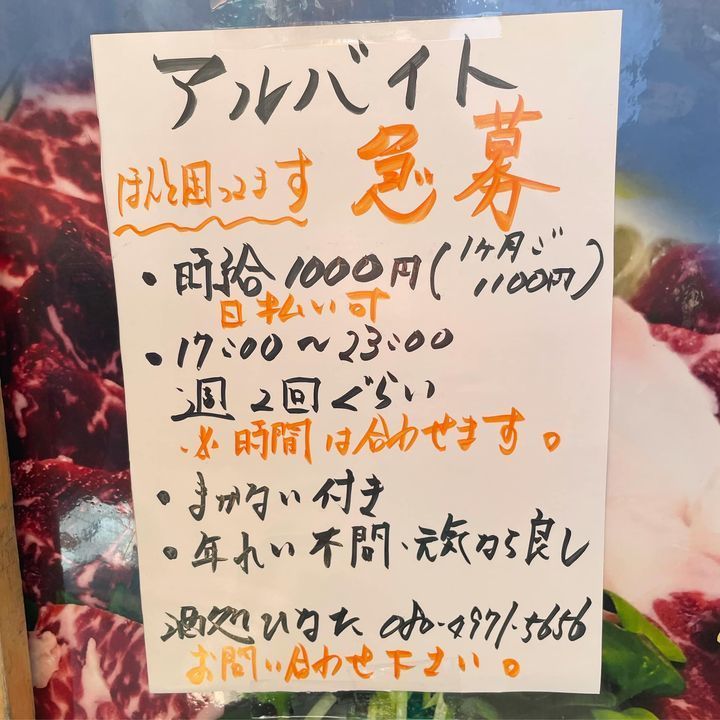 アルバイト
急募
ほんと困ってます
・時給1000円(1ヶ月ご1100円)
日払い可
・17:00〜23:00
週2回ぐらい
※時間は合わせます。
・まかない付き
・年れい不問・元気なら良し
酒処ひなた 080-4971-5656
お問い合わせ下さい。